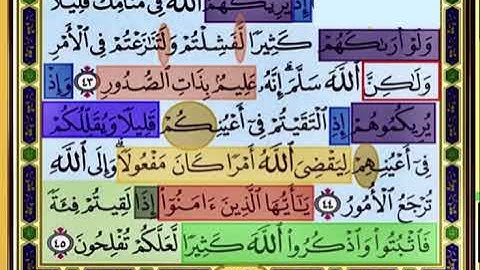 إِذْ يُرِيكَهُمُ ٱللَّهُ فِى مَنَامِكَ قَلِيلًا
وَلَوْ أَرَىٰكَهُمْ كَثِيرًا لَّفَشِلْتُمْ وَلَتَنَٰزَعْتُمْ فِى ٱلْأَمْرِ
وَلَٰكِنَّ ٱللَّهَ سَلَّمَ ۗ إِنَّهُۥ عَلِيمٌۢ بِذَاتِ ٱلصُّدُورِ ٤٣ وَإِذْ
يُرِيكُمُوهُمْ إِذِ ٱلْتَقَيْتُمْ فِىٓ أَعْيُنِكُمْ قَلِيلًا وَيُقَلِّلُكُمْ
فِىٓ أَعْيُنِهِمْ لِيَقْضِىَ ٱللَّهُ أَمْرًا كَانَ مَفْعُولًا ۗ وَإِلَى ٱللَّهِ
تُرْجَعُ ٱلْأُمُورُ ٤٤ يَٰٓأَيُّهَا ٱلَّذِينَ ءَامَنُوٓا۟ إِذَا لَقِيتُمْ فِئَةً
فَٱثْبُتُوا۟ وَٱذْكُرُوا۟ ٱللَّهَ كَثِيرًا لَّعَلَّكُمْ تُفْلِحُونَ ٤٥